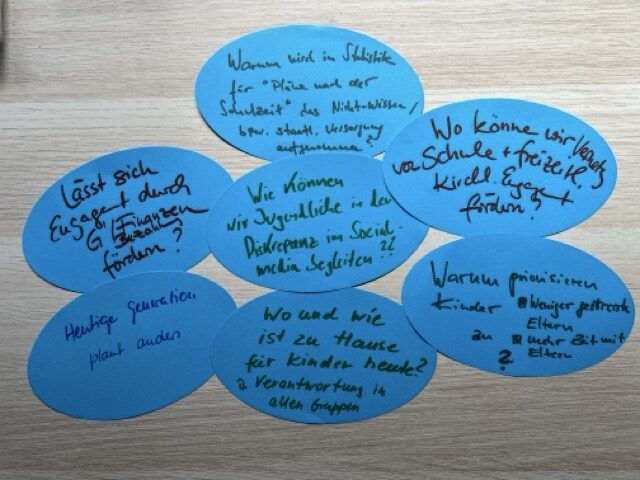 Warum wird in Statistik
für "Pläne nach der
Schulzeit" das Nicht-Wissen/
bpw. staatl. Versorgung
aufgenommen?
Wo könne wir
von Schule + freizeitl.
Kirchl. Engagent
fördern?
Lässt sich
Engagent durch
Finanzen
fördern?
Wie können
wir Jugendliche in der
Diskrepanz im Social-
media begleiten?!
Warum priorisieren
Kinder weniger gestresste
Eltern
zu mehr Zeit mit
Eltern
?
Heutige Generation
plant anders
Wo und wie
ist zu Hause
für Kinder heute?
Verantwortung in
allen Gruppen